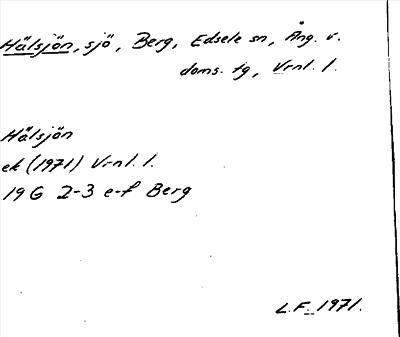 Hälsjön, sjö, Berg, Edsele sn, Ång. v.
doms. tg, Vrnl. l.
Hälsjön
ek (1971) Vrnl. l.
19 G 2-3 e-f Berg
L.F. 1971.